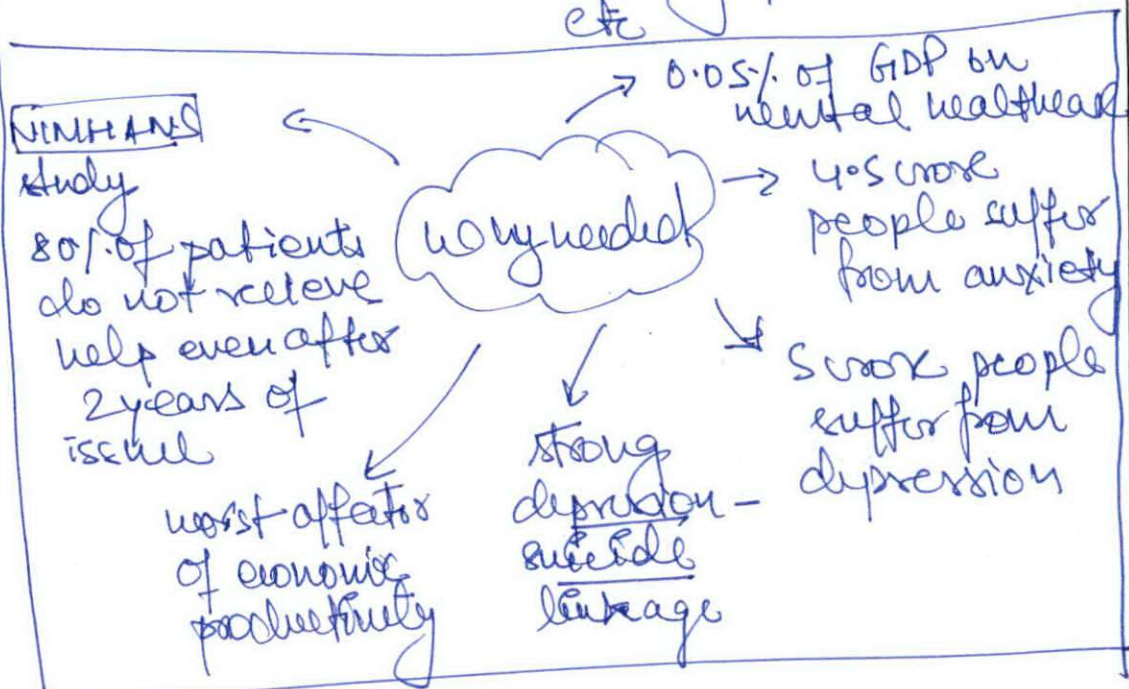 etc
NIMHANS
study
80% of patients
do not receive
help even after
2 years of
issue
why needed
0.05% of GDP on
mental healthcare
4.5 crore
people suffer
from anxiety
5 crore people
suffer from
depression
strong
depression -
suicide
linkage
worst affector
of economic
productivity